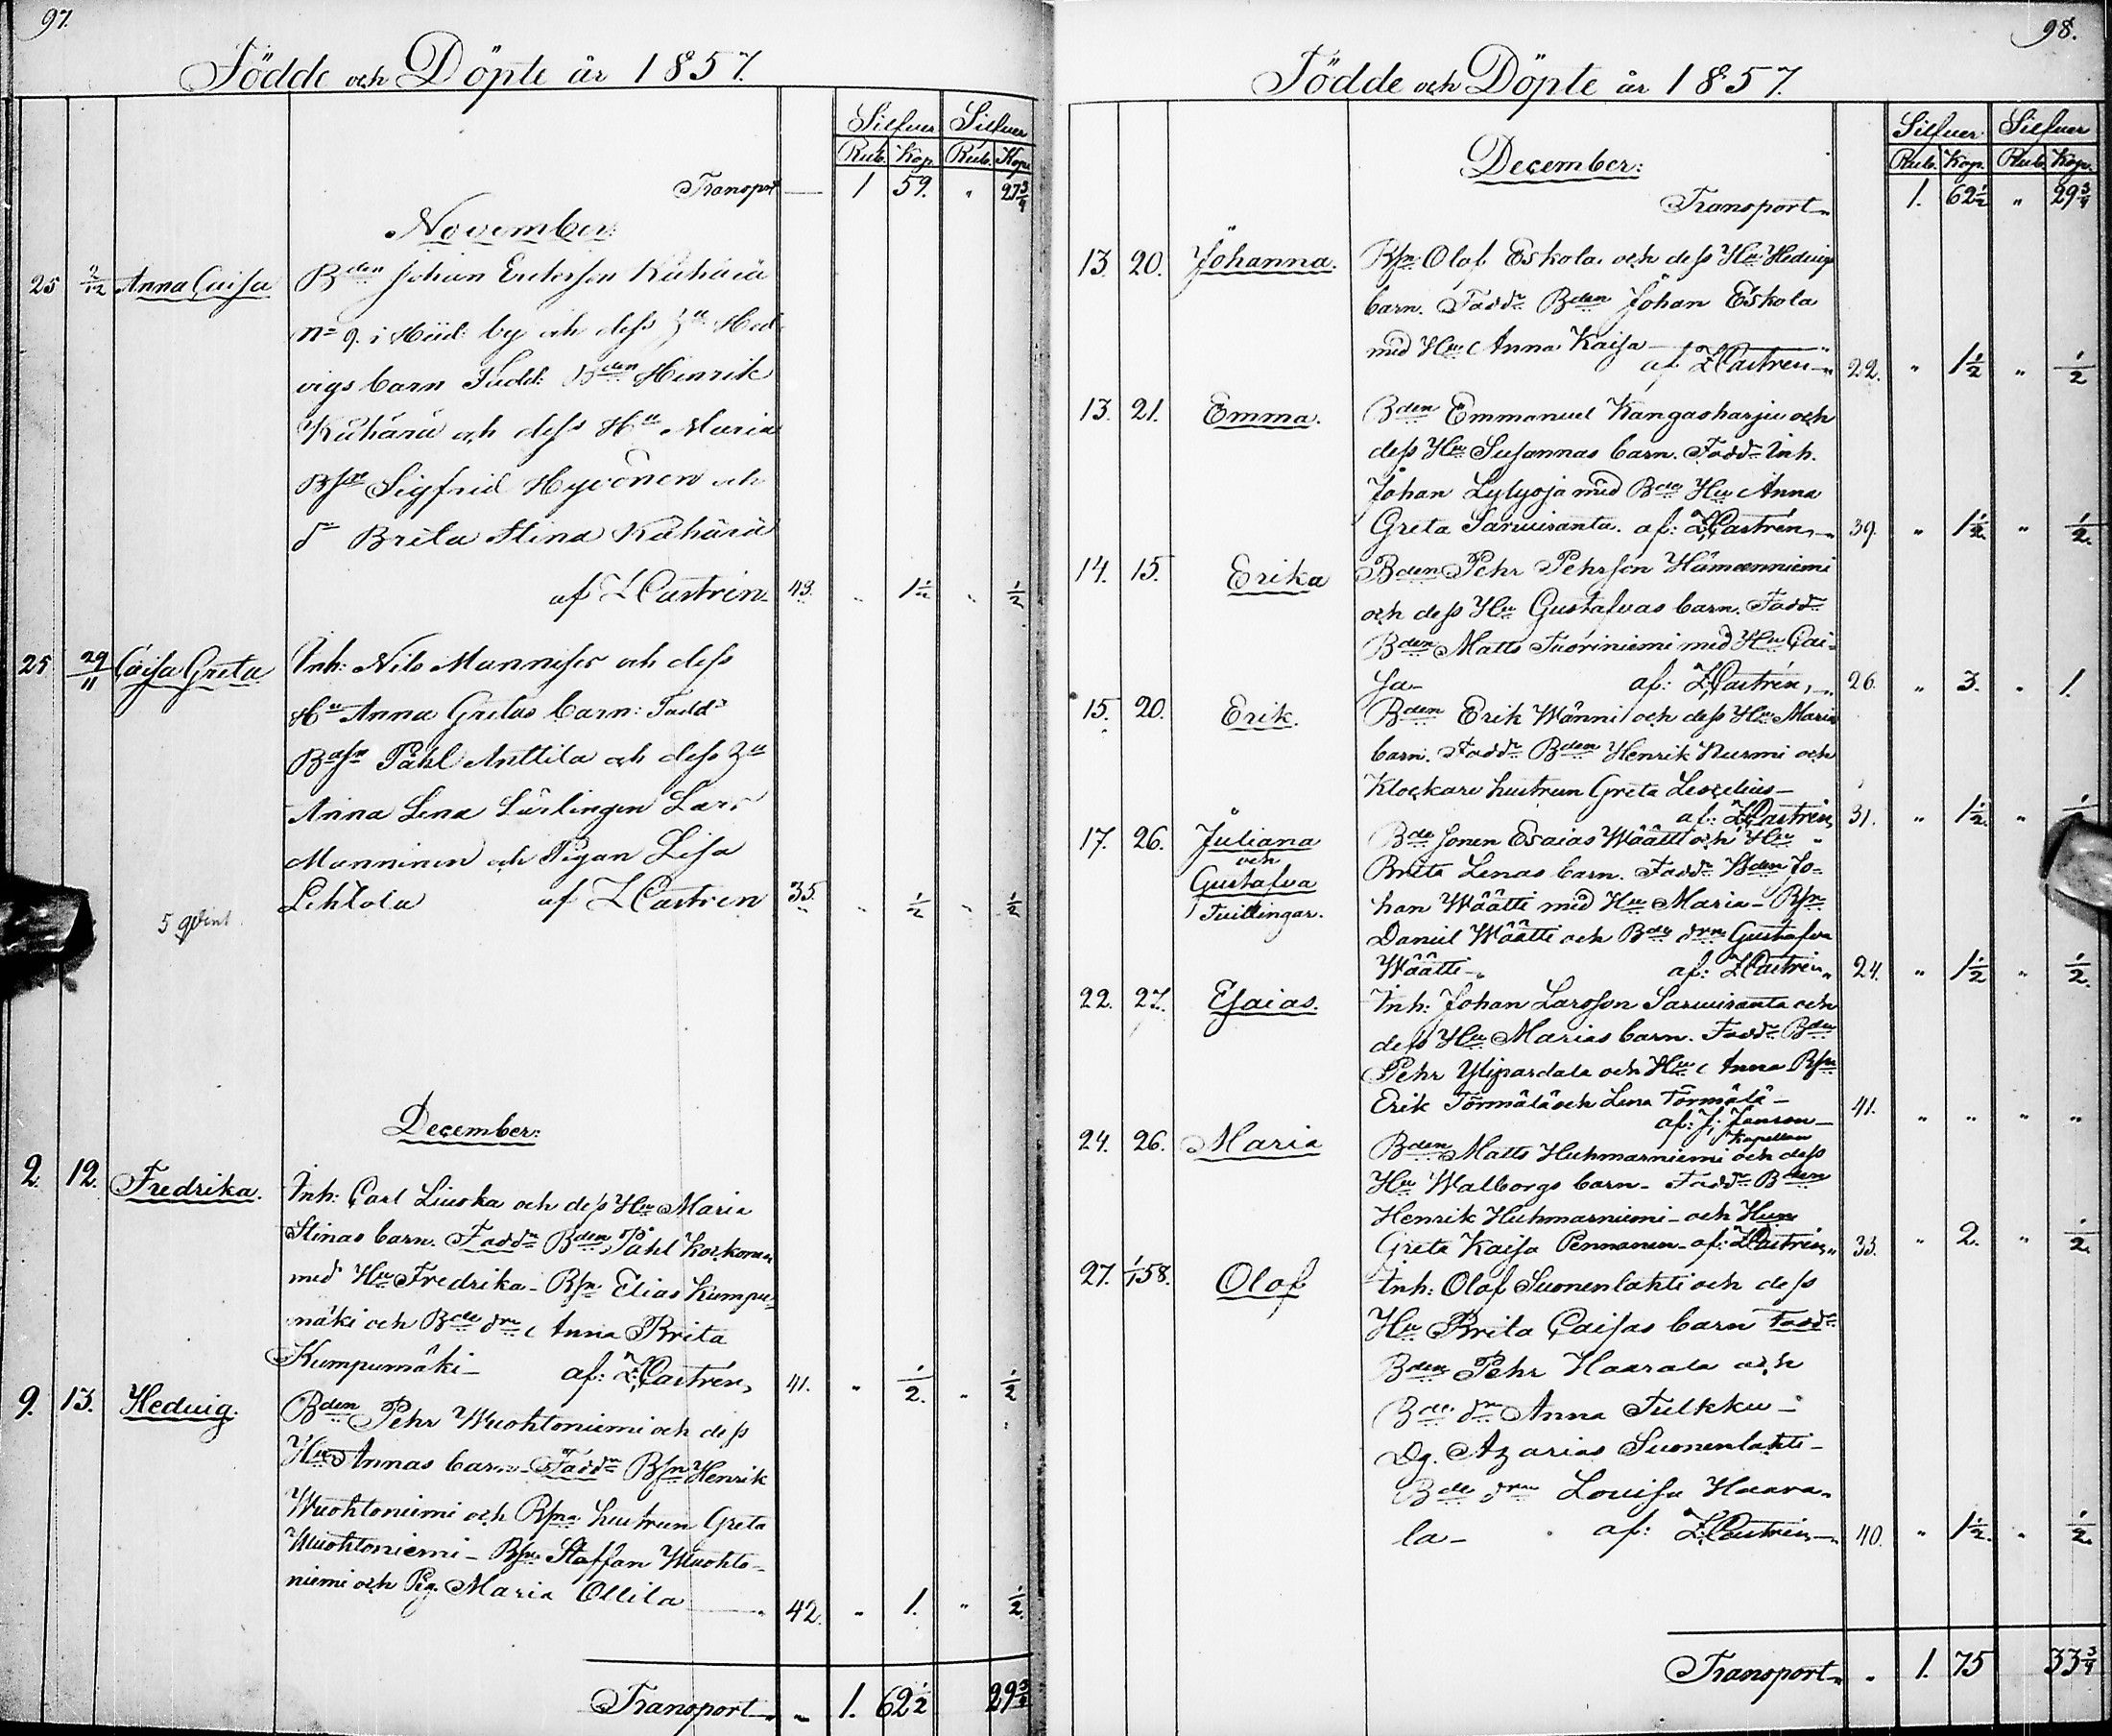 97.
Födde och Döpte år 1857.
Silfver Silfver
Rub. Kop. Rub. Kop.
Transport — 1 59. " 27 3/4
November:
25 2/12 Anna Caisa Bden Johan Ersson Kähärä
n= 9. i Hiid: by och dess Hu Hed-
vigs barn Fadd: Bden Henrik
Kähärä och dess Hu Maria
Bsn Sigfrid Hyvönen och
dr Brita Stina Kähärä
af Z Castrén 43. " 1 1/2 " 1/2
25 29/11 Caisa Greta Inh: Nils Mannises och dess
Hu Anna Gretas barn: Fadd:
Bdsn Påhl Anttila och dess Hu
Anna Lena Lärlingen Lars
Manninen och Pigan Lisa
Lehtola af Z Castren 35. " 1/2 " 1/2
5 qvint
December:
2. 12. Fredrika. Inh: Carl Liuska och dess Hu Maria
Stinas barn. Faddr Bden Påhl Korkonen
med Hu Fredrika - Bsn Elias Kumpu-
mäki och Bde drn Anna Brita
Kumpumäki - af: Z, Castrén, 41. " 1/2. " 1/2
9. 13. Hedvig. Bden Pehr Wuohtoniemi och dess
Hu Annas barn - Faddr Bsn Henrik
Wuohtoniemi och Bsna hustrun Greta
Wuohtoniemi - Bsn Staffan Wuohto-
niemi och Pig. Maria Ollila — 42. " 1. " 1/2.
Transport " 1. 62 1/2 29 3/4
98.
Födde och Döpte år 1857.
Silfver Silfver
Rub. Kop. Rub. Kop.
December:
Transport " 1. 62 1/2 " 29 3/4
13. 20. Johanna. Bsn Olof Eskola och dess Hu Hedvigs
barn. Faddr Bden Johan Eskola
med Hu Anna Kaisa -
af Z Castrén " 22. " 1 1/2 " 1/2
13. 21. Emma. Bden Emmanuel Kangasharju och
dess Hu Susannas barn. Faddr Inh.
Johan Lylyoja med Bde Hu Anna
Greta Sarwiranta. af: Z, Castrén, 39. " 1 1/2. " 1/2.
14. 15. Erika Bden Pehr Pehrson Hämeenniemi
och dess Hu Gustafvas barn. Faddr
Bden Matts Tuoriniemi med Hu Cai-
sa - af: Z, Castrén, 26. " 3. " 1.
15. 20. Erik. Bden Erik Wänni och dess Hu Maria
barn. Faddr Bden Henrik Nurmi och
Klockare hustrun Greta Lescelius -
af: Z, Castrén, 31. " 1 1/2. "
17. 26. Juliana Bde Sonen Esaias Wäätti och Hu
och
Gustafva Brita Lenas barn. Faddr Bden Jo-
Tvillingar. han Wäätti med Hu Maria - Bsn
Daniel Wäätti och Bde drn Gustafva
Wäätti - af: Z Castrén, 24. " 1 1/2 " 1/2.
22. 27. Esaias. Inh: Johan Larsson Sarwiranta och
dess Hu Marias barn. Faddr Bden
Pehr Ylipardala och Hu Anna Bsn
Erik Törmälä och Lena Törmälä -
af: J, Janson - 41. " " " "
Kapellan
24. 26. Maria Bden Matts Huhmarniemi och dess
Hu Walborgs barn - Faddr Bden
Henrik Huhmarniemi - och Hun
Greta Kaisa Pennanen - af: Z Castrén, 33. " 2. " 1/2.
27. 1/1 58. Olof Inh: Olof Suonenlahti och dess
Hu Brita Caisas barn Faddr
Bden Pehr Haarala och
Bde dr Anna Tulkku -
Dg. Azarias Suonenlahti -
Bde drn Lovisa Haara-
la - af: Z, Castrén - 40. " 1 1/2. " 1/2.
Transport " " 1. 75 33 3/4